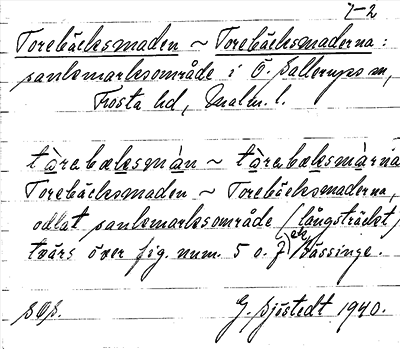 7-2
Torebäcksmaden ~ Torebäcksmaderna:
sankmarksområde i Ö. Sallerups sn,
Frosta hd, Malm. l.
tòrabæksmàn ~ tòrabæksmàrna
Torebäcksmaden ~ Torebäcksmaderna,
odlat sankmarksområde (långsträckt)
tvärs över fig. num. 5 o. 7 Bässinge.
G. Sjöstedt 1940.